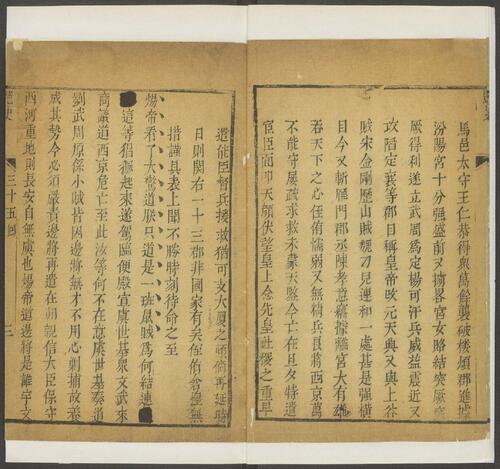 馬邑太守王仁恭得衆萬餘襲破樓煩郡進據
汾陽宮十分强盛前又擄畧宮女賂結突厥突厥
得利遂立武周爲定楊可汗兵威益震近又
攻陷定襄等郡自稱皇帝改元天興又與上谷
賊宋金剛歷山賊魏刀兒連和一處甚是强橫
目今又斬雁門郡丞陳孝意竊據離宮大有竝
吞天下之心侄侑懦弱又無精兵良將西京萬
不能守屢疏求救未蒙天鑒今亡在旦夕特遣
宦臣面叩天顔伏望皇上念先皇社稷之重早
遣能臣督兵援救猶可支大厦之傾倘再延時
日則關右一十三郡非國家有矣侄侑誓惶無
措謹具表上聞不勝時刻待命之至
煬帝看了大驚道朕只道是一班鼠賊爲何結連
這等猖獗起來遂駕臨便殿宣虞世基衆文武來
商議道西京危亡至此汝等何不在意虞世基奏道
劉武周原係小賊皆因邊將無才不用心剿捕故養
成其勢今必須嚴責邊將再遣在朝親信大臣保守
西河重地則長安自無虞也煬帝道邊將是誰宇文
艷史
三十五回
三